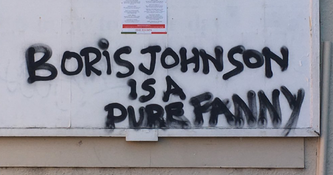 BORIS JOHNSON
IS A
PURE FANNY